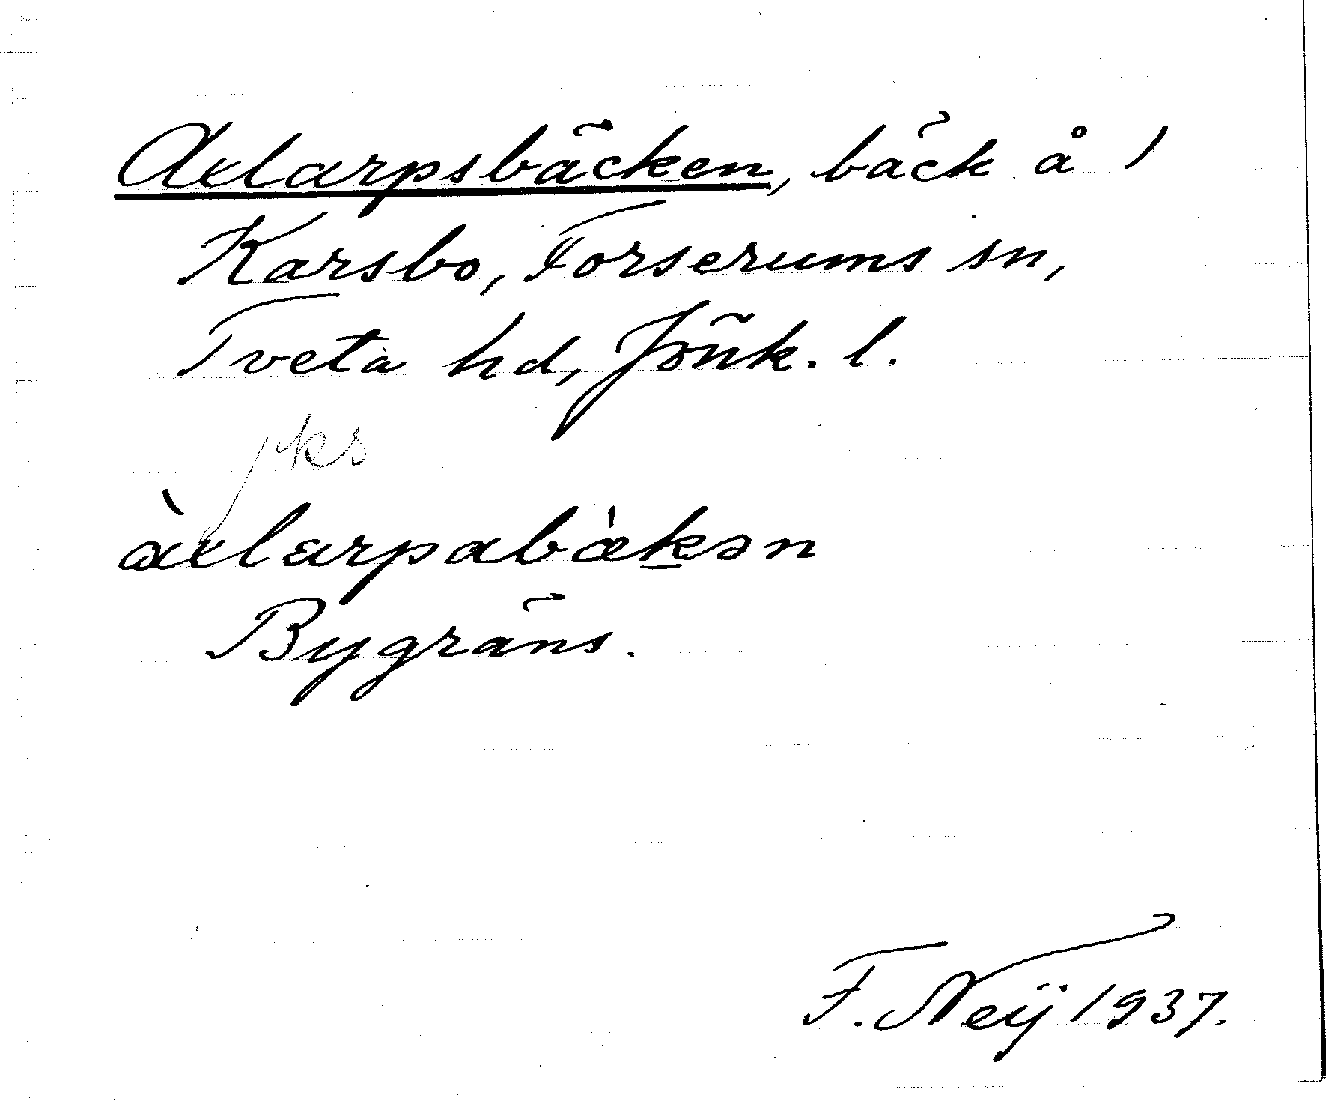 Axlarpsbäcken, bäck å 1
Karsbo, Forserums sn,
Tveta hd, Jönk. l.
ks
àxlarpabàkən
Bygräns.
F. Neÿ 1937.